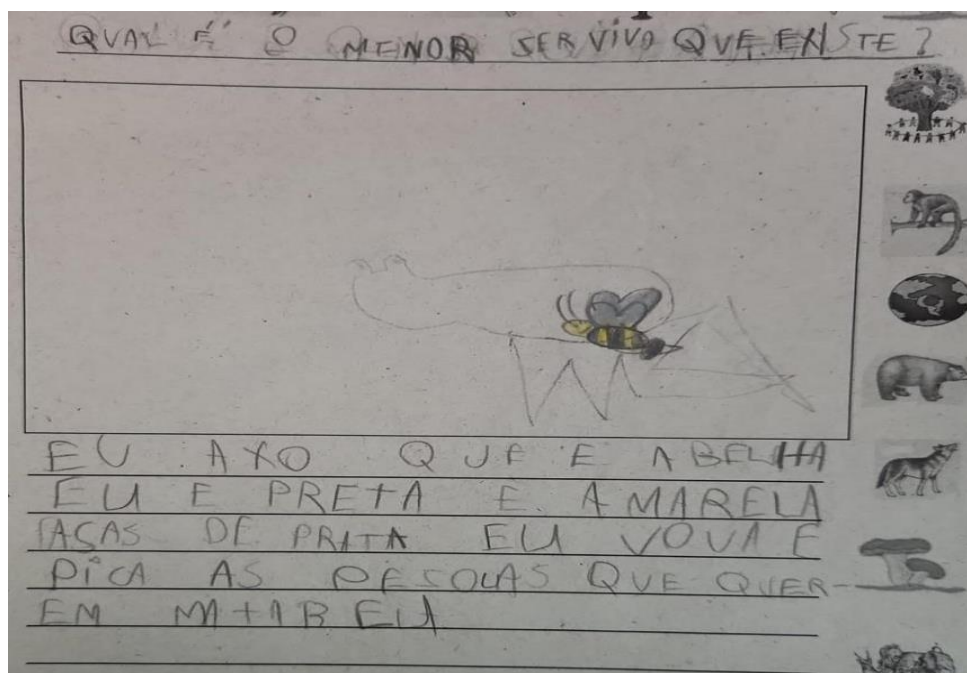 QUAL É O MENOR SER VIVO QUE EXISTE?
EU AXO QUE E ABELHA
ELA E PRETA E AMARELA
ASAS DE PRATA ELA VOUA E
PICA AS PESOUAS QUE QUER-
EM MATAR ELA